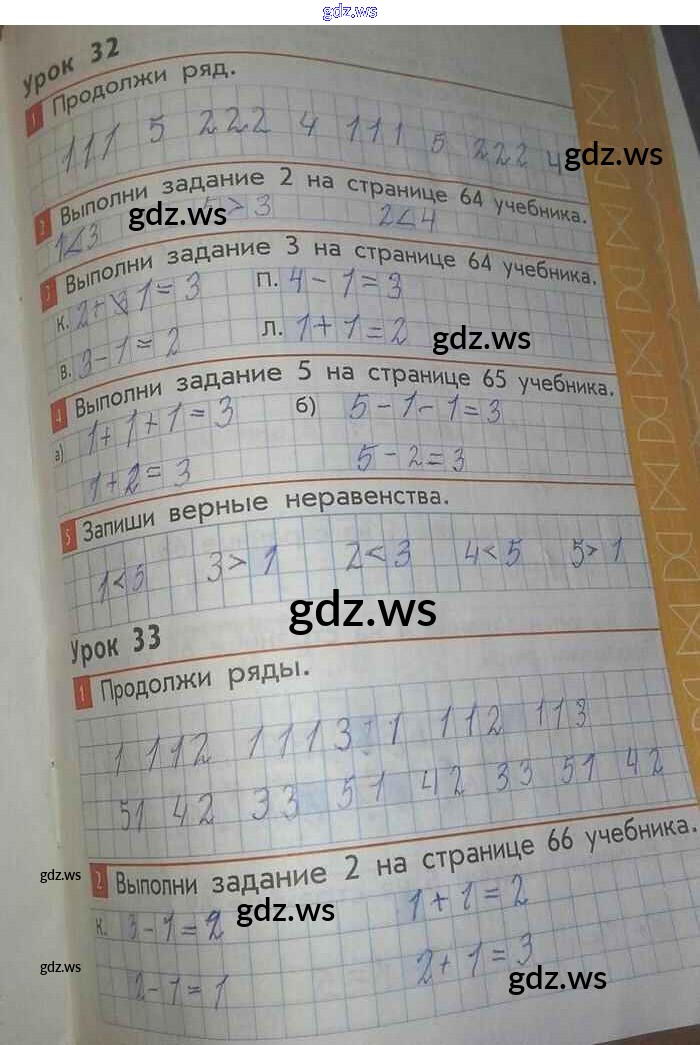 gdz.ws
Урок 32
1 Продолжи ряд.
111 5 222 4 111 5 222 4
gdz.ws
2 Выполни задание 2 на странице 64 учебника.
gdz.ws
1<3 5>3 2<4
3 Выполни задание 3 на странице 64 учебника.
к. 2+1=3 п. 4-1=3
в. 3-1=2 л. 1+1=2
gdz.ws
4 Выполни задание 5 на странице 65 учебника.
а) 1+1+1=3 б) 5-1-1=3
1+2=3 5-2=3
5 Запиши верные неравенства.
1<5 3>1 2<3 4<5 5>1
gdz.ws
Урок 33
1 Продолжи ряды.
1 1 1 2 1 1 1 3 1 1 1 1 2 1 1 3
51 42 33 51 42 33 51 42
2 Выполни задание 2 на странице 66 учебника.
gdz.ws
к. 3-1=2 1+1=2
gdz.ws
2-1=1 2+1=3
gdz.ws
gdz.ws